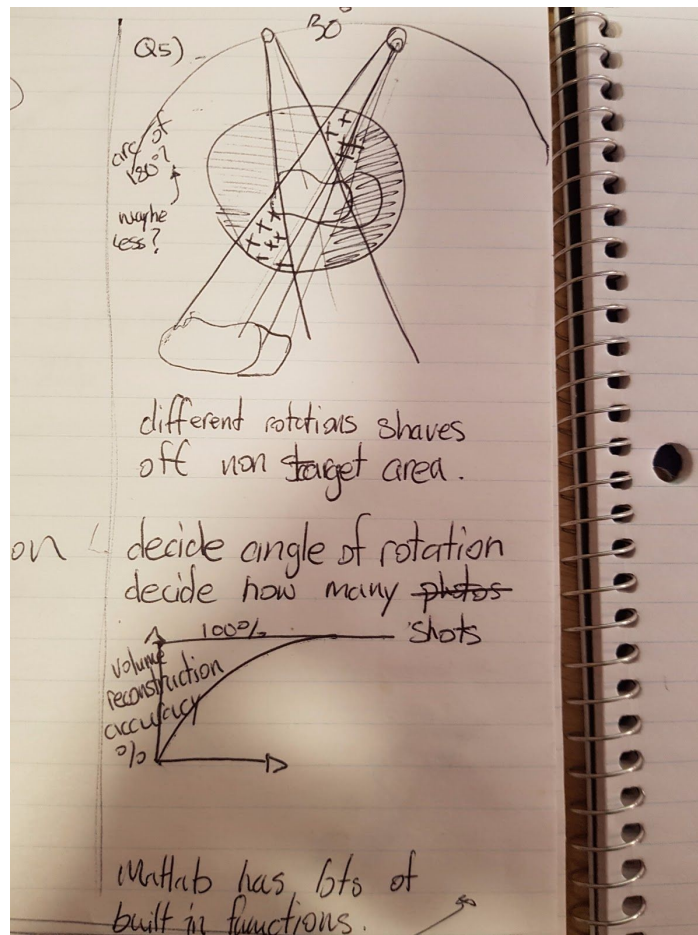 30°
Q5)
arc of
180°?
maybe
less?
different rotations shaves
off non target area.
on
decide angle of rotation
decide how many photos
shots
100%
volume
reconstruction
accuracy
%
Matlab has lots of
built in functions.